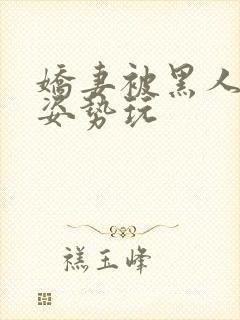 嬌妻被黑人
姿勢玩
禚玉峰